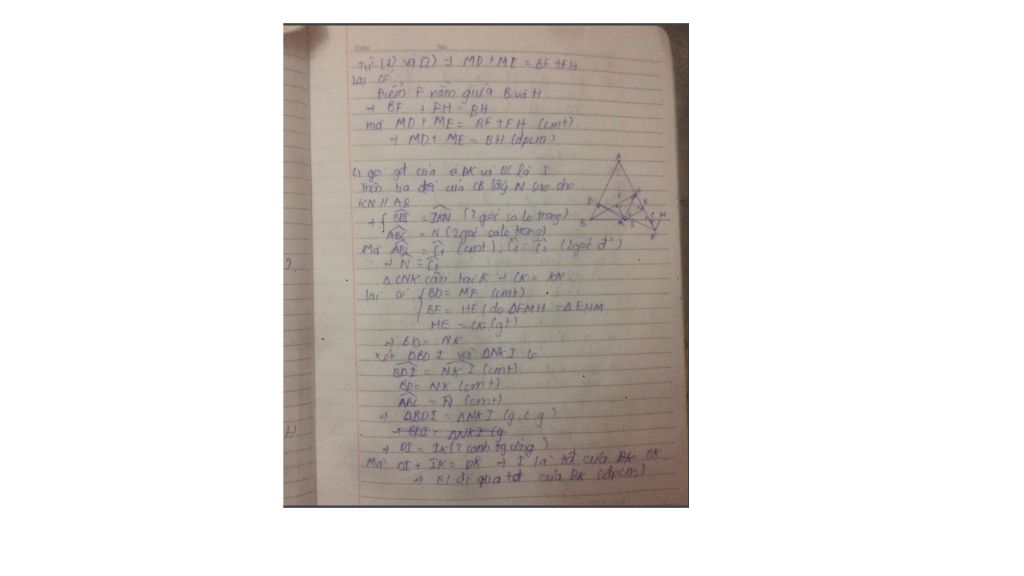 Từ (1) và (2) → MD + ME = BF + FH
lại có:
Điểm F nằm giữa B và H
→ BF + FH = BH
mà MD + ME = BF + FH (cmt)
→ MD + ME = BH (đpcm)
c) gọi gđ của DK và BC là I
trên tia đối của CB lấy N sao cho
KN // AB
→ { BDI = IKN (2 góc so le trong)
ABC = N (2 góc so le trong)
Mà ABC = C1 (cmt); C1 = C2 (2 góc đ²)
→ N = C2
Δ CNK cân tại K → CK = KN
lại có { BD = MF (cmt)
MF = HE (do ΔFMH = ΔEHM
HE = CK (gt)
→ BD = NK
xét ΔBDI và ΔNKI có
BDI = NKI (cmt)
BD = NK (cmt)
ABC = N (cmt)
→ ΔBDI = ΔNKI (g.c.g)
→ BDI = ΔNKI (g
→ DI = IK (2 cạnh tg ứng)
Mà DI + IK = DK → I là tđ của DK
→ BC đi qua tđ của DK (đpcm)